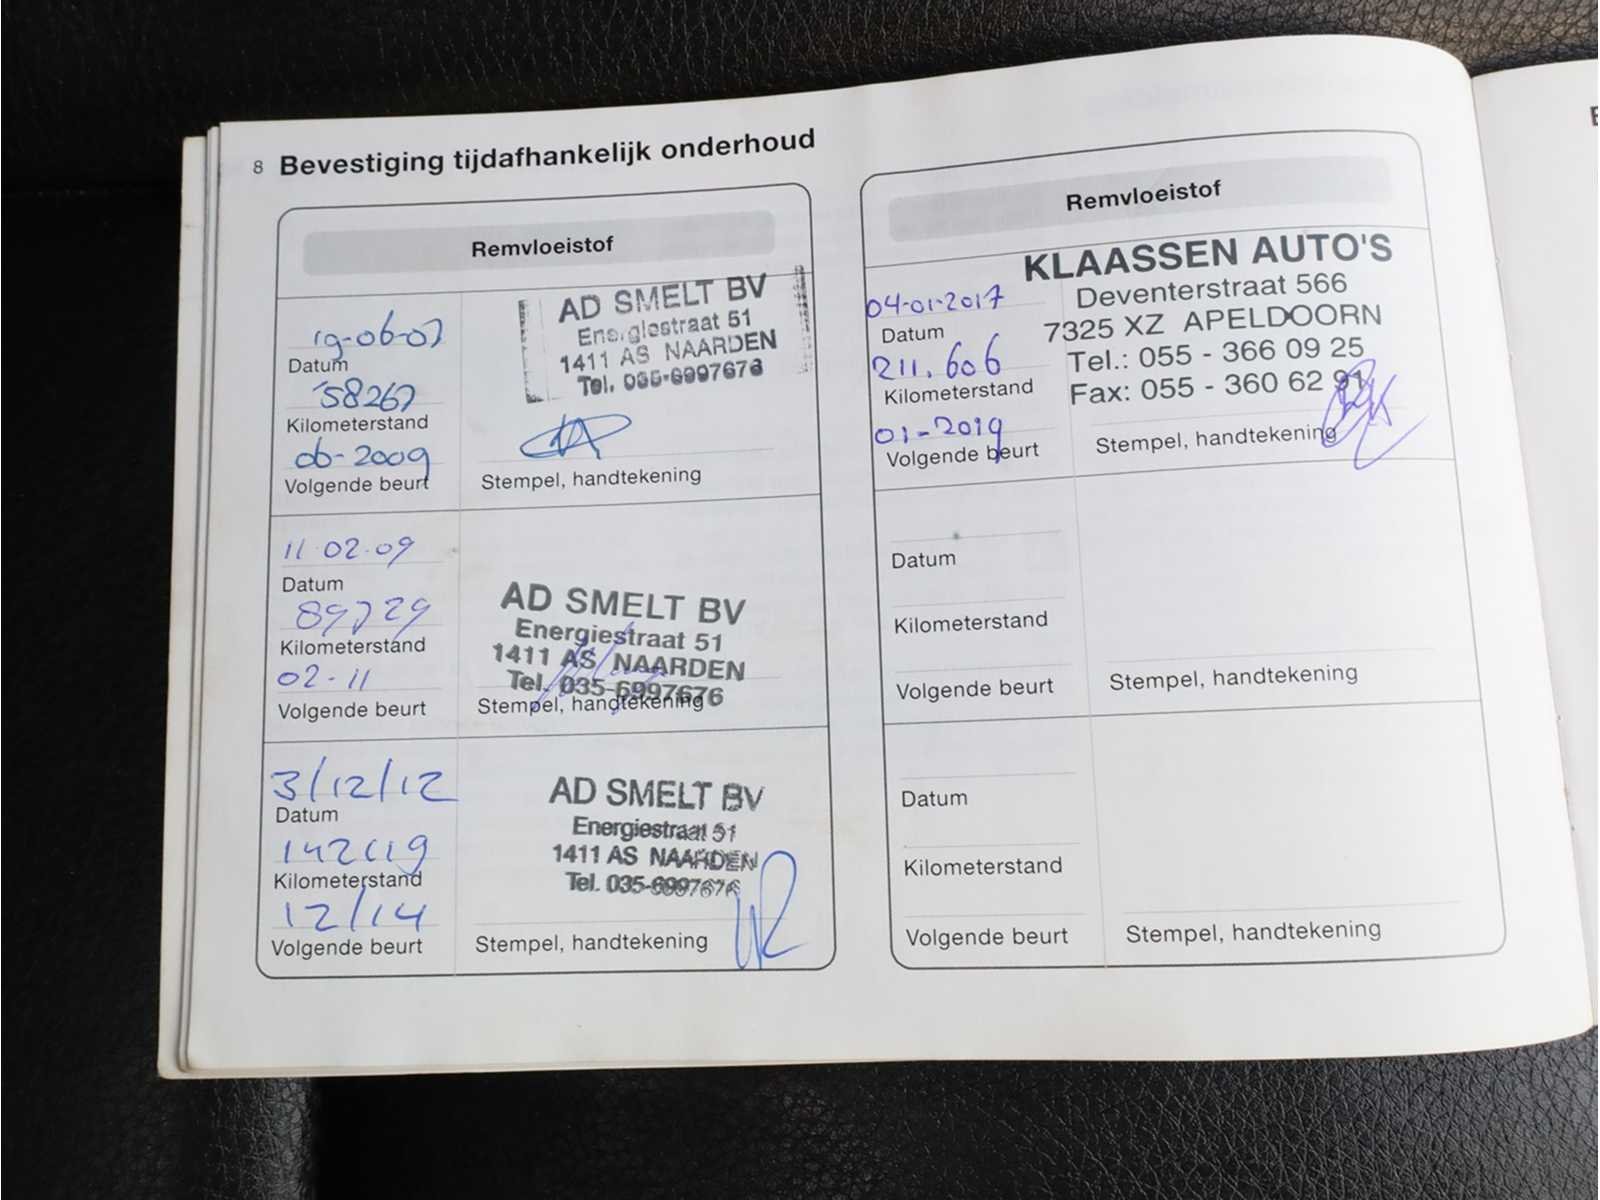 8 Bevestiging tijdafhankelijk onderhoud
Remvloeistof
19-06-07
Datum
58267
Kilometerstand
06-2009
Volgende beurt
AD SMELT BV
Energiestraat 51
1411 AS NAARDEN
Tel. 035-6997676
Stempel, handtekening
11.02.09
Datum
89729
Kilometerstand
02-11
Volgende beurt
AD SMELT BV
Energiestraat 51
1411 AS NAARDEN
Tel. 035-6997676
Stempel, handtekening
3/12/12
Datum
142119
Kilometerstand
12/14
Volgende beurt
AD SMELT BV
Energiestraat 51
1411 AS NAARDEN
Tel. 035-6997676
Stempel, handtekening
Remvloeistof
04-01-2017
Datum
211.606
Kilometerstand
01-2019
Volgende beurt
KLAASSEN AUTO'S
Deventerstraat 566
7325 XZ APELDOORN
Tel.: 055 - 366 09 25
Fax: 055 - 360 62 91
Stempel, handtekening
Datum
Kilometerstand
Volgende beurt
Stempel, handtekening
Datum
Kilometerstand
Volgende beurt
Stempel, handtekening